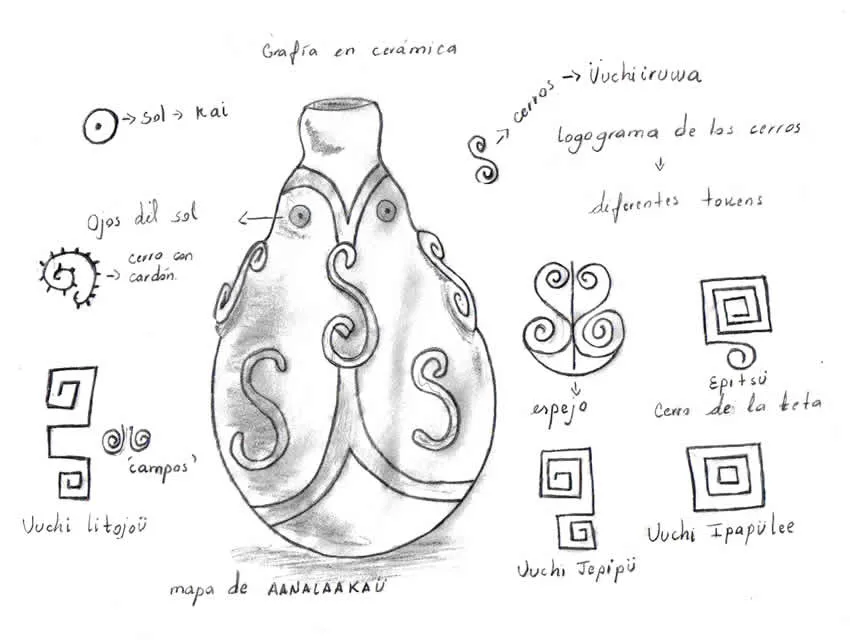 Grafía en cerámica
sol → Kai
Ojos del sol
cerro con
cardón.
'campos'
Uuchi litojoü
mapa de AANALAAKAÜ
cerros → Üuchiiruwa
logograma de los cerros
diferentes tokens
espejo
Epitsü
Cerro de la teta
Uuchi Jepipü
Uuchi Ipapülee